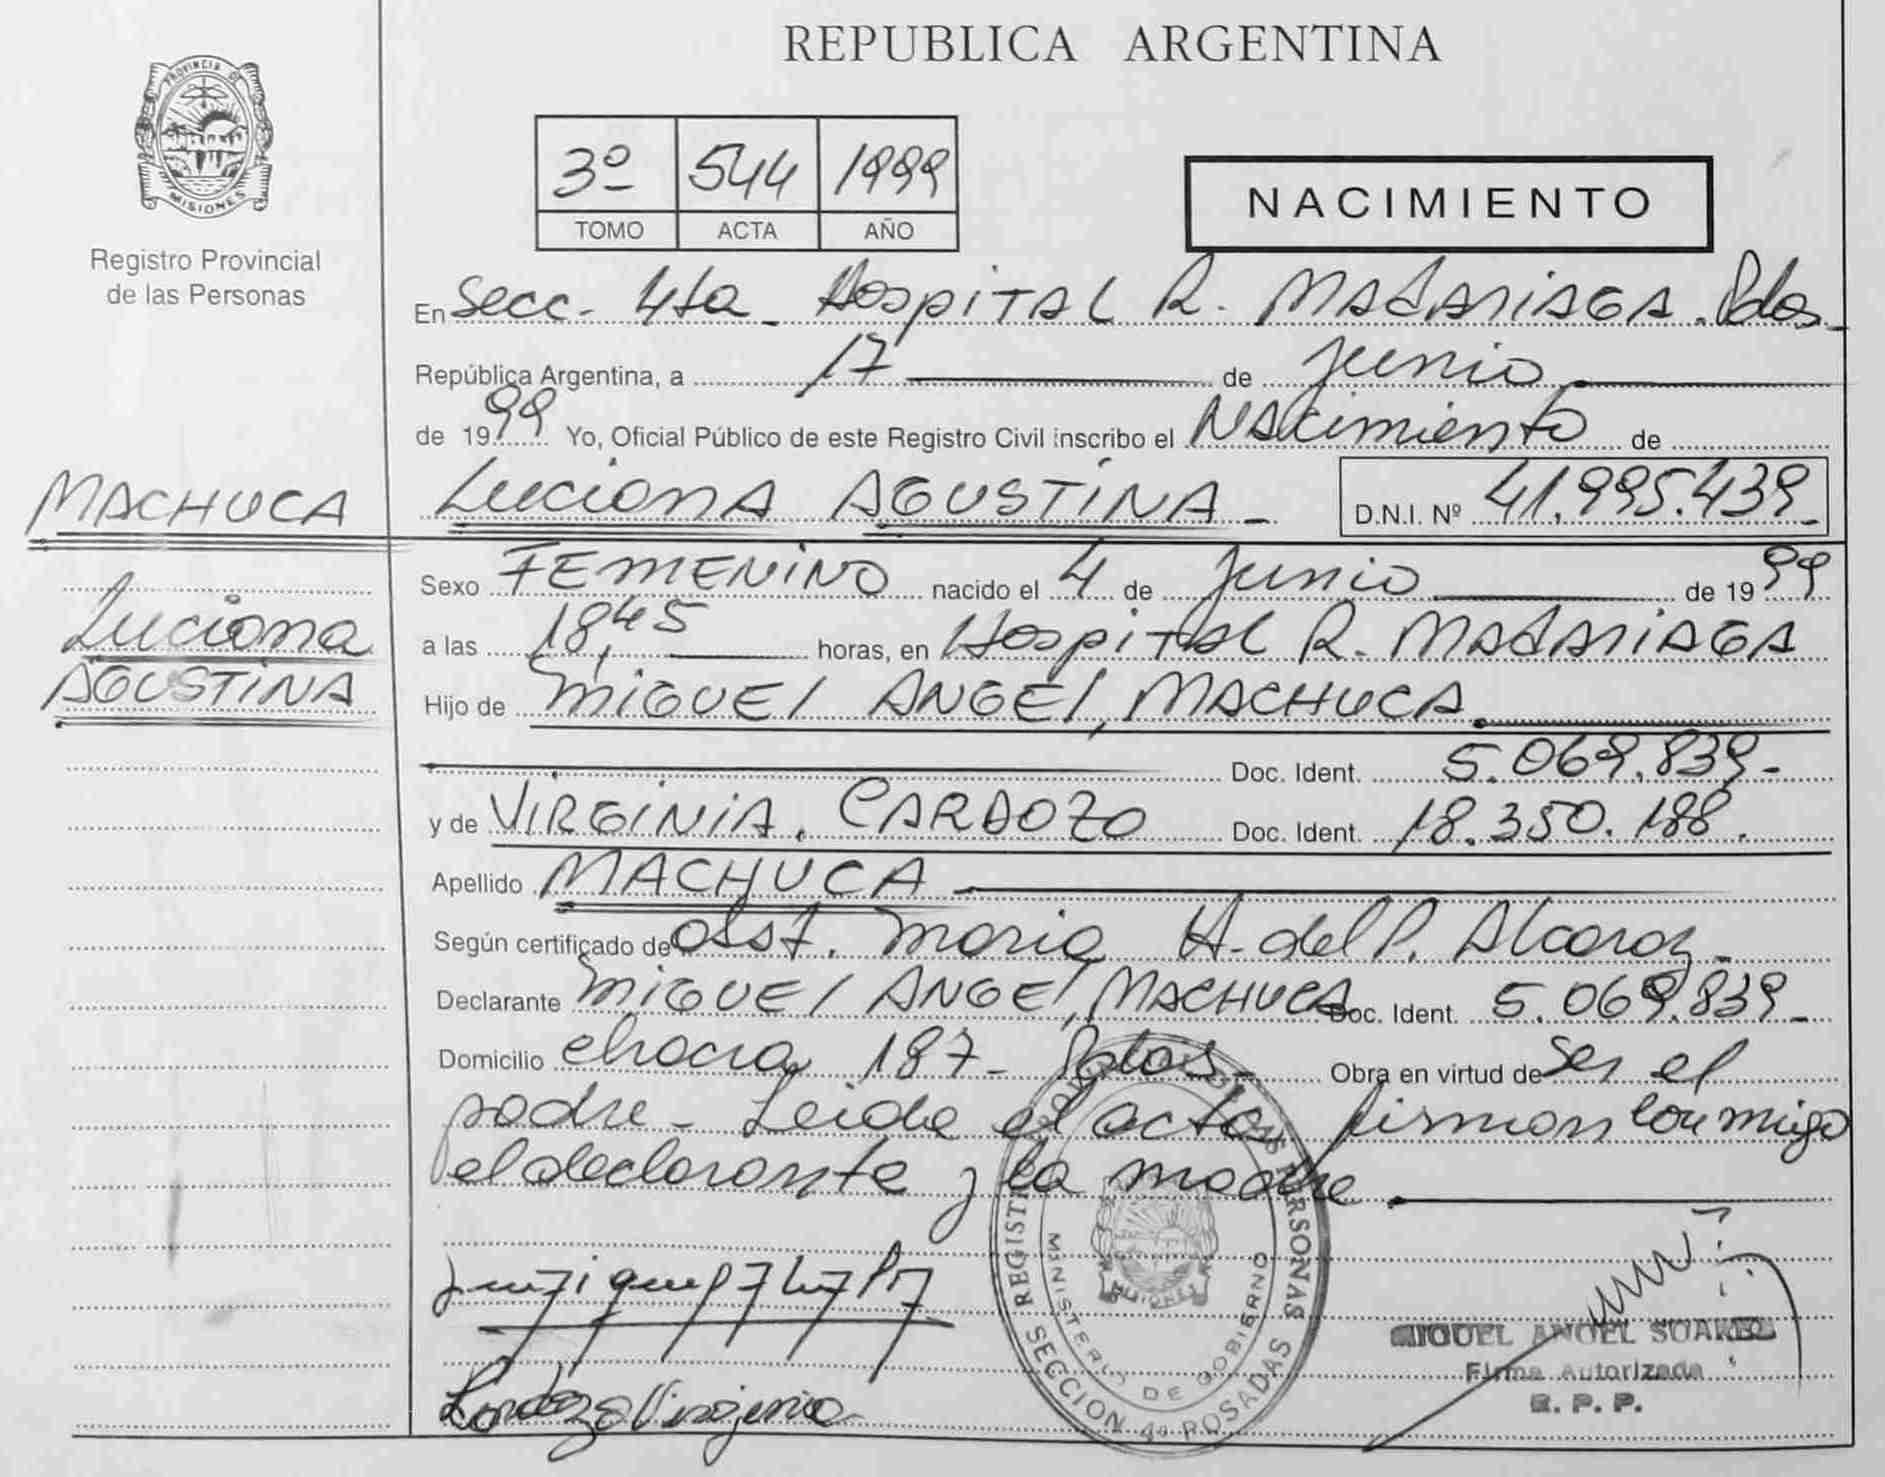 REPUBLICA ARGENTINA
PROVINCIA DE
MISIONES
Registro Provincial
de las Personas
3º 544 1999
TOMO ACTA AÑO
NACIMIENTO
En Secc. 4ta Hospital R. MADARIAGA. Pdas
República Argentina, a 17 de junio
de 1999 Yo, Oficial Público de este Registro Civil inscribo el Nacimiento de
MACHUCA
Luciana AGUSTINA D.N.I. Nº 41.995.439
Sexo FEMENINO nacido el 4 de junio de 1999
Luciana
AGUSTINA
a las 18,45 horas, en Hospital R. MADARIAGA
Hijo de MIGUEL ANGEL, MACHUCA.
Doc. Ident. 5.069.839
y de VIRGINIA, CARDOZO Doc. Ident. 18.350.188.
Apellido MACHUCA
Según certificado de obst. Maria H. del P. Alcaraz
Declarante MIGUEL ANGEL, MACHUCA Doc. Ident. 5.069.839
Domicilio 187 - Pdas. Obra en virtud de ser el
padre - Leida el acta firman conmigo
el declarante y la madre.
REGISTRO PROVINCIAL DE LAS PERSONAS
MINISTERIO DE GOBIERNO
MISIONES
SECCION 4ª POSADAS
Virginia
MIGUEL ANGEL SOAREZ
Firma Autorizada
R. P. P.